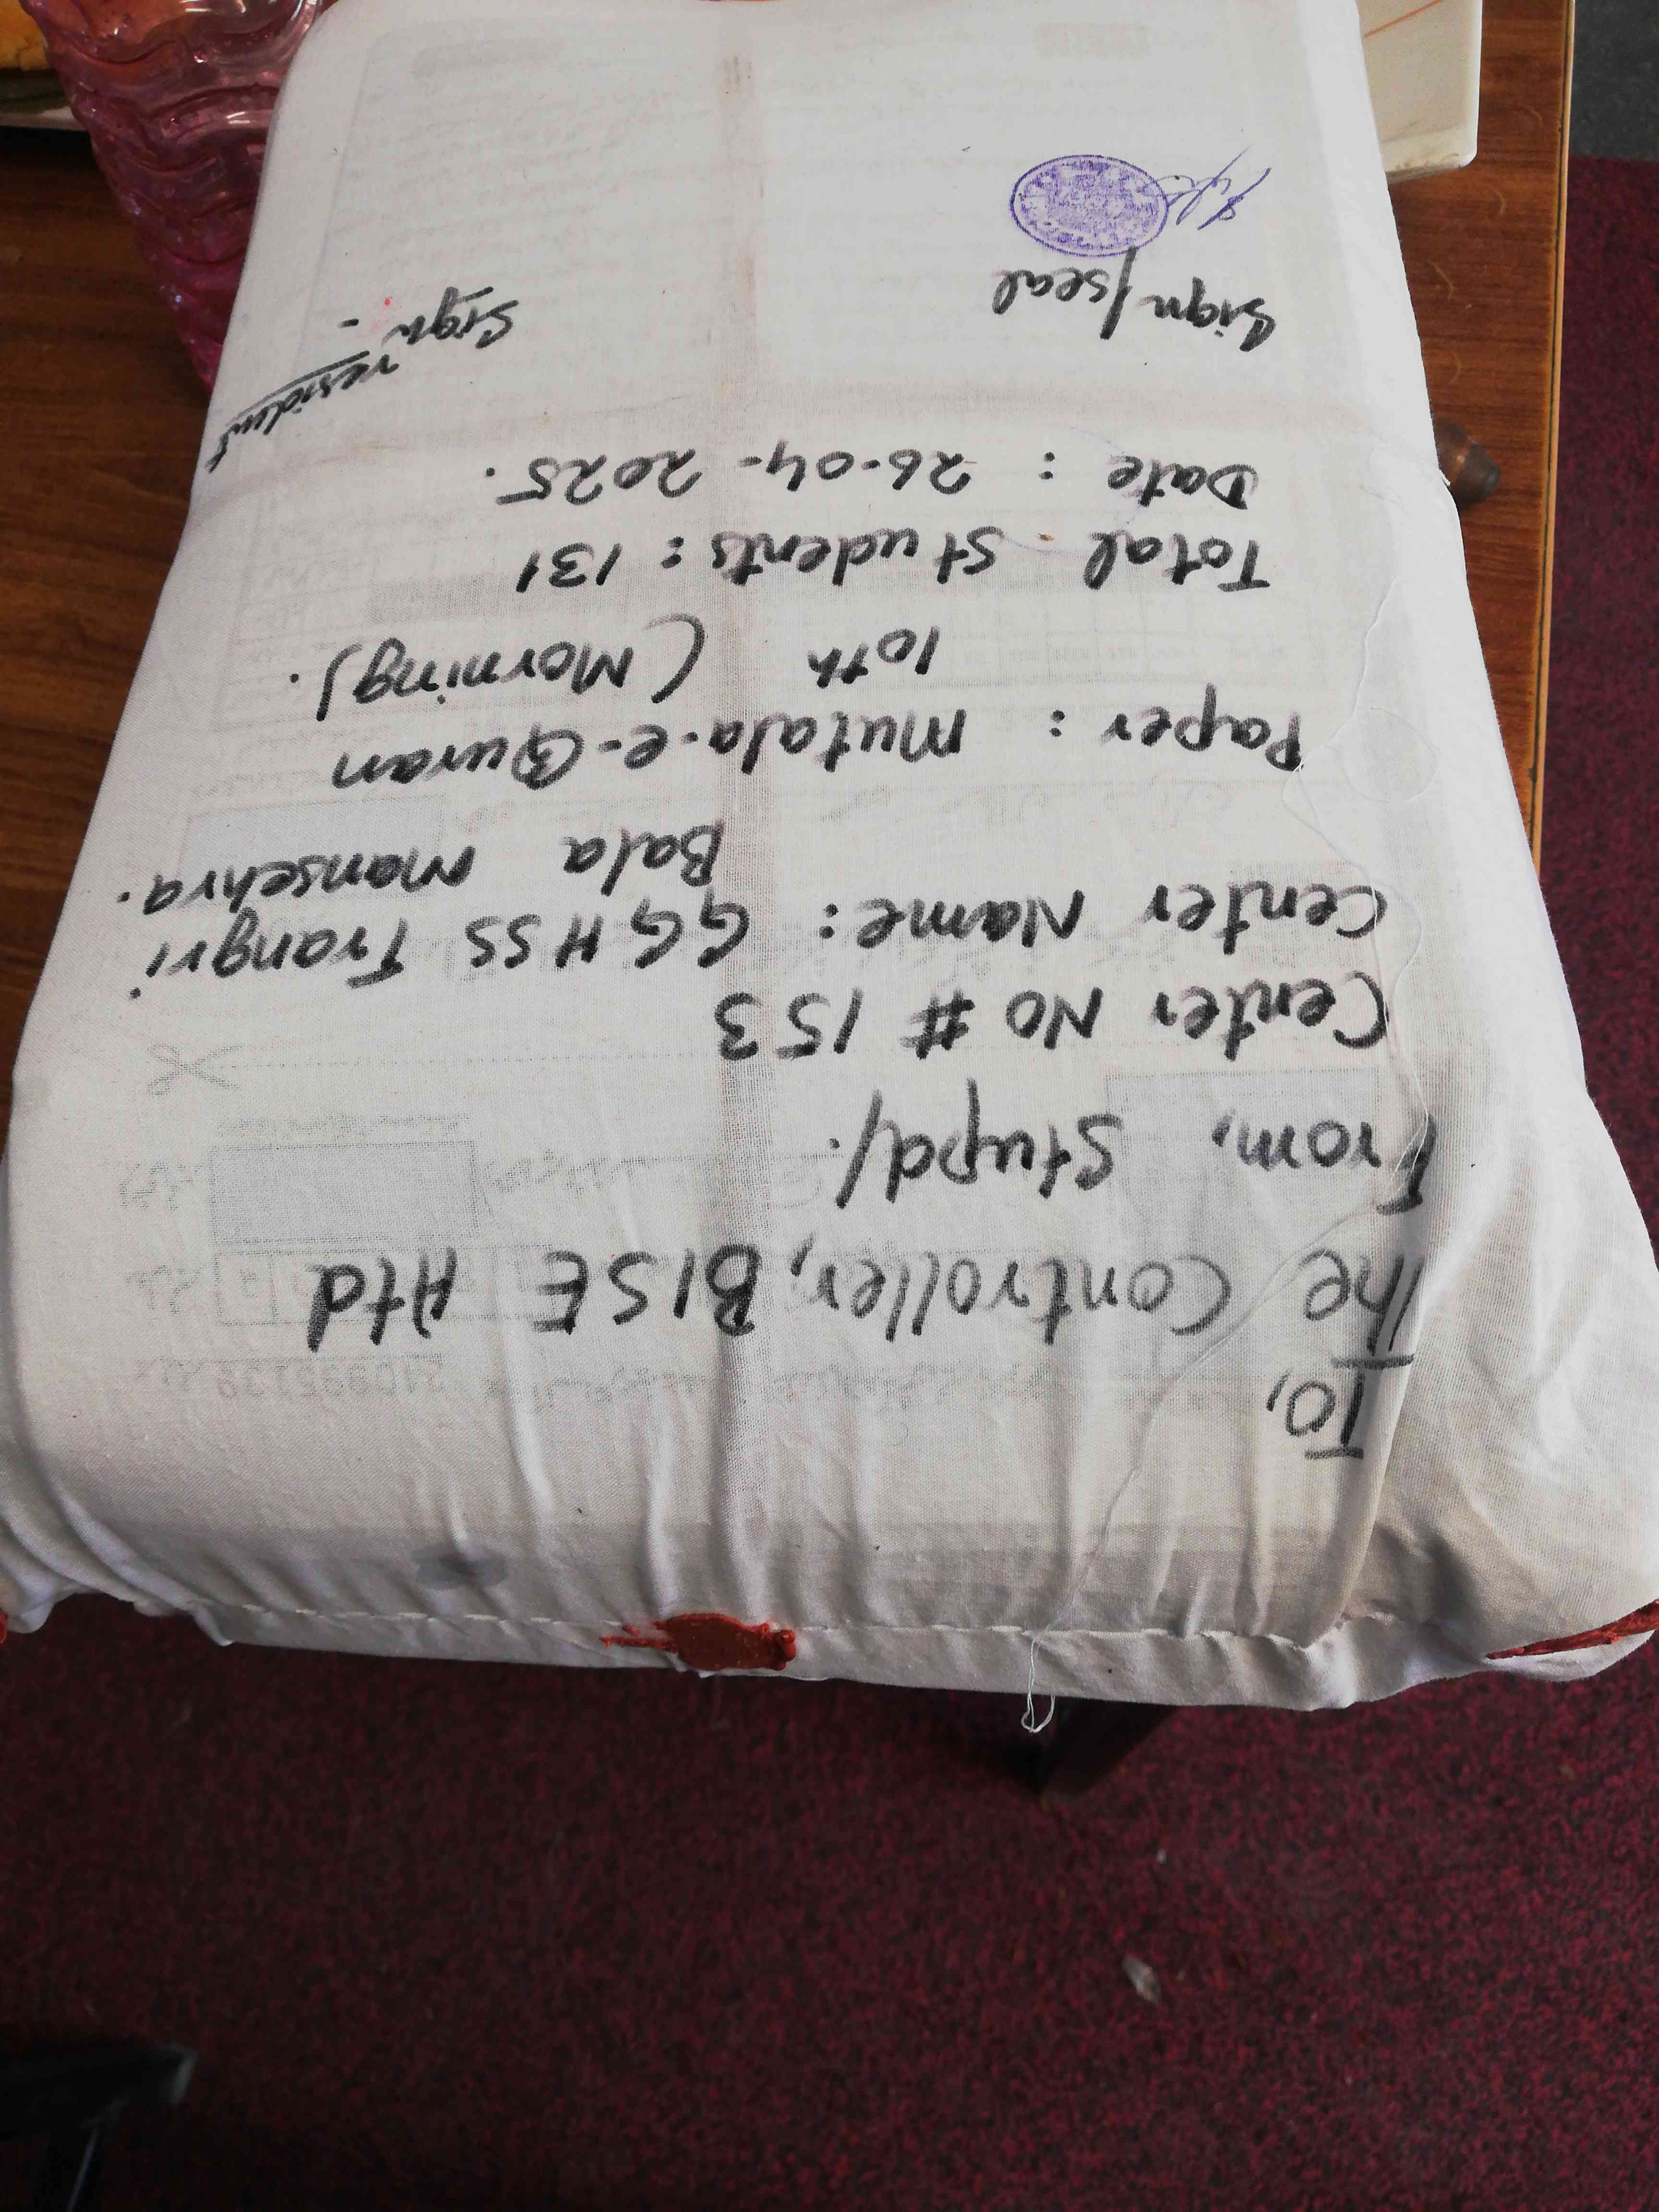 To,
The Controller, BISE Atd
From, Stupd/.
Center No # 153
Center Name: GGHSS Trangri
Bala Mansehra.
Paper: Mutala-e-Quran
10th (Morning).
Total Students: 131
Date: 26-04-2025.
resident
Sign/seal
Sign -